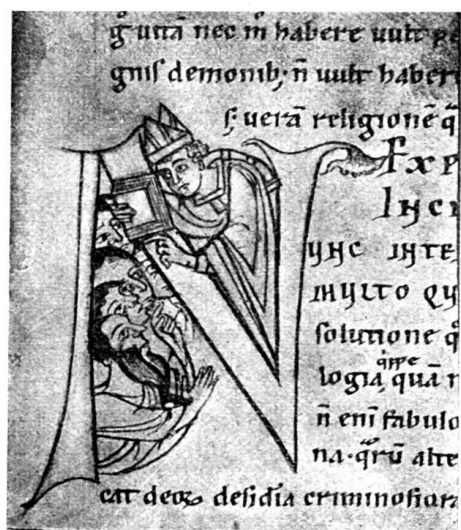 q̃ uitā nec m̄ habere uult pe
gnis demonib; n̄ uult haber
s; uerā religionē q̄
N Exp
Inci
unc inte
multo qu
solutione q
logiā q̄ppe quā n
n̄ enī fabulo
na. q̄rū alte
cat deoꝝ desidia criminosiora